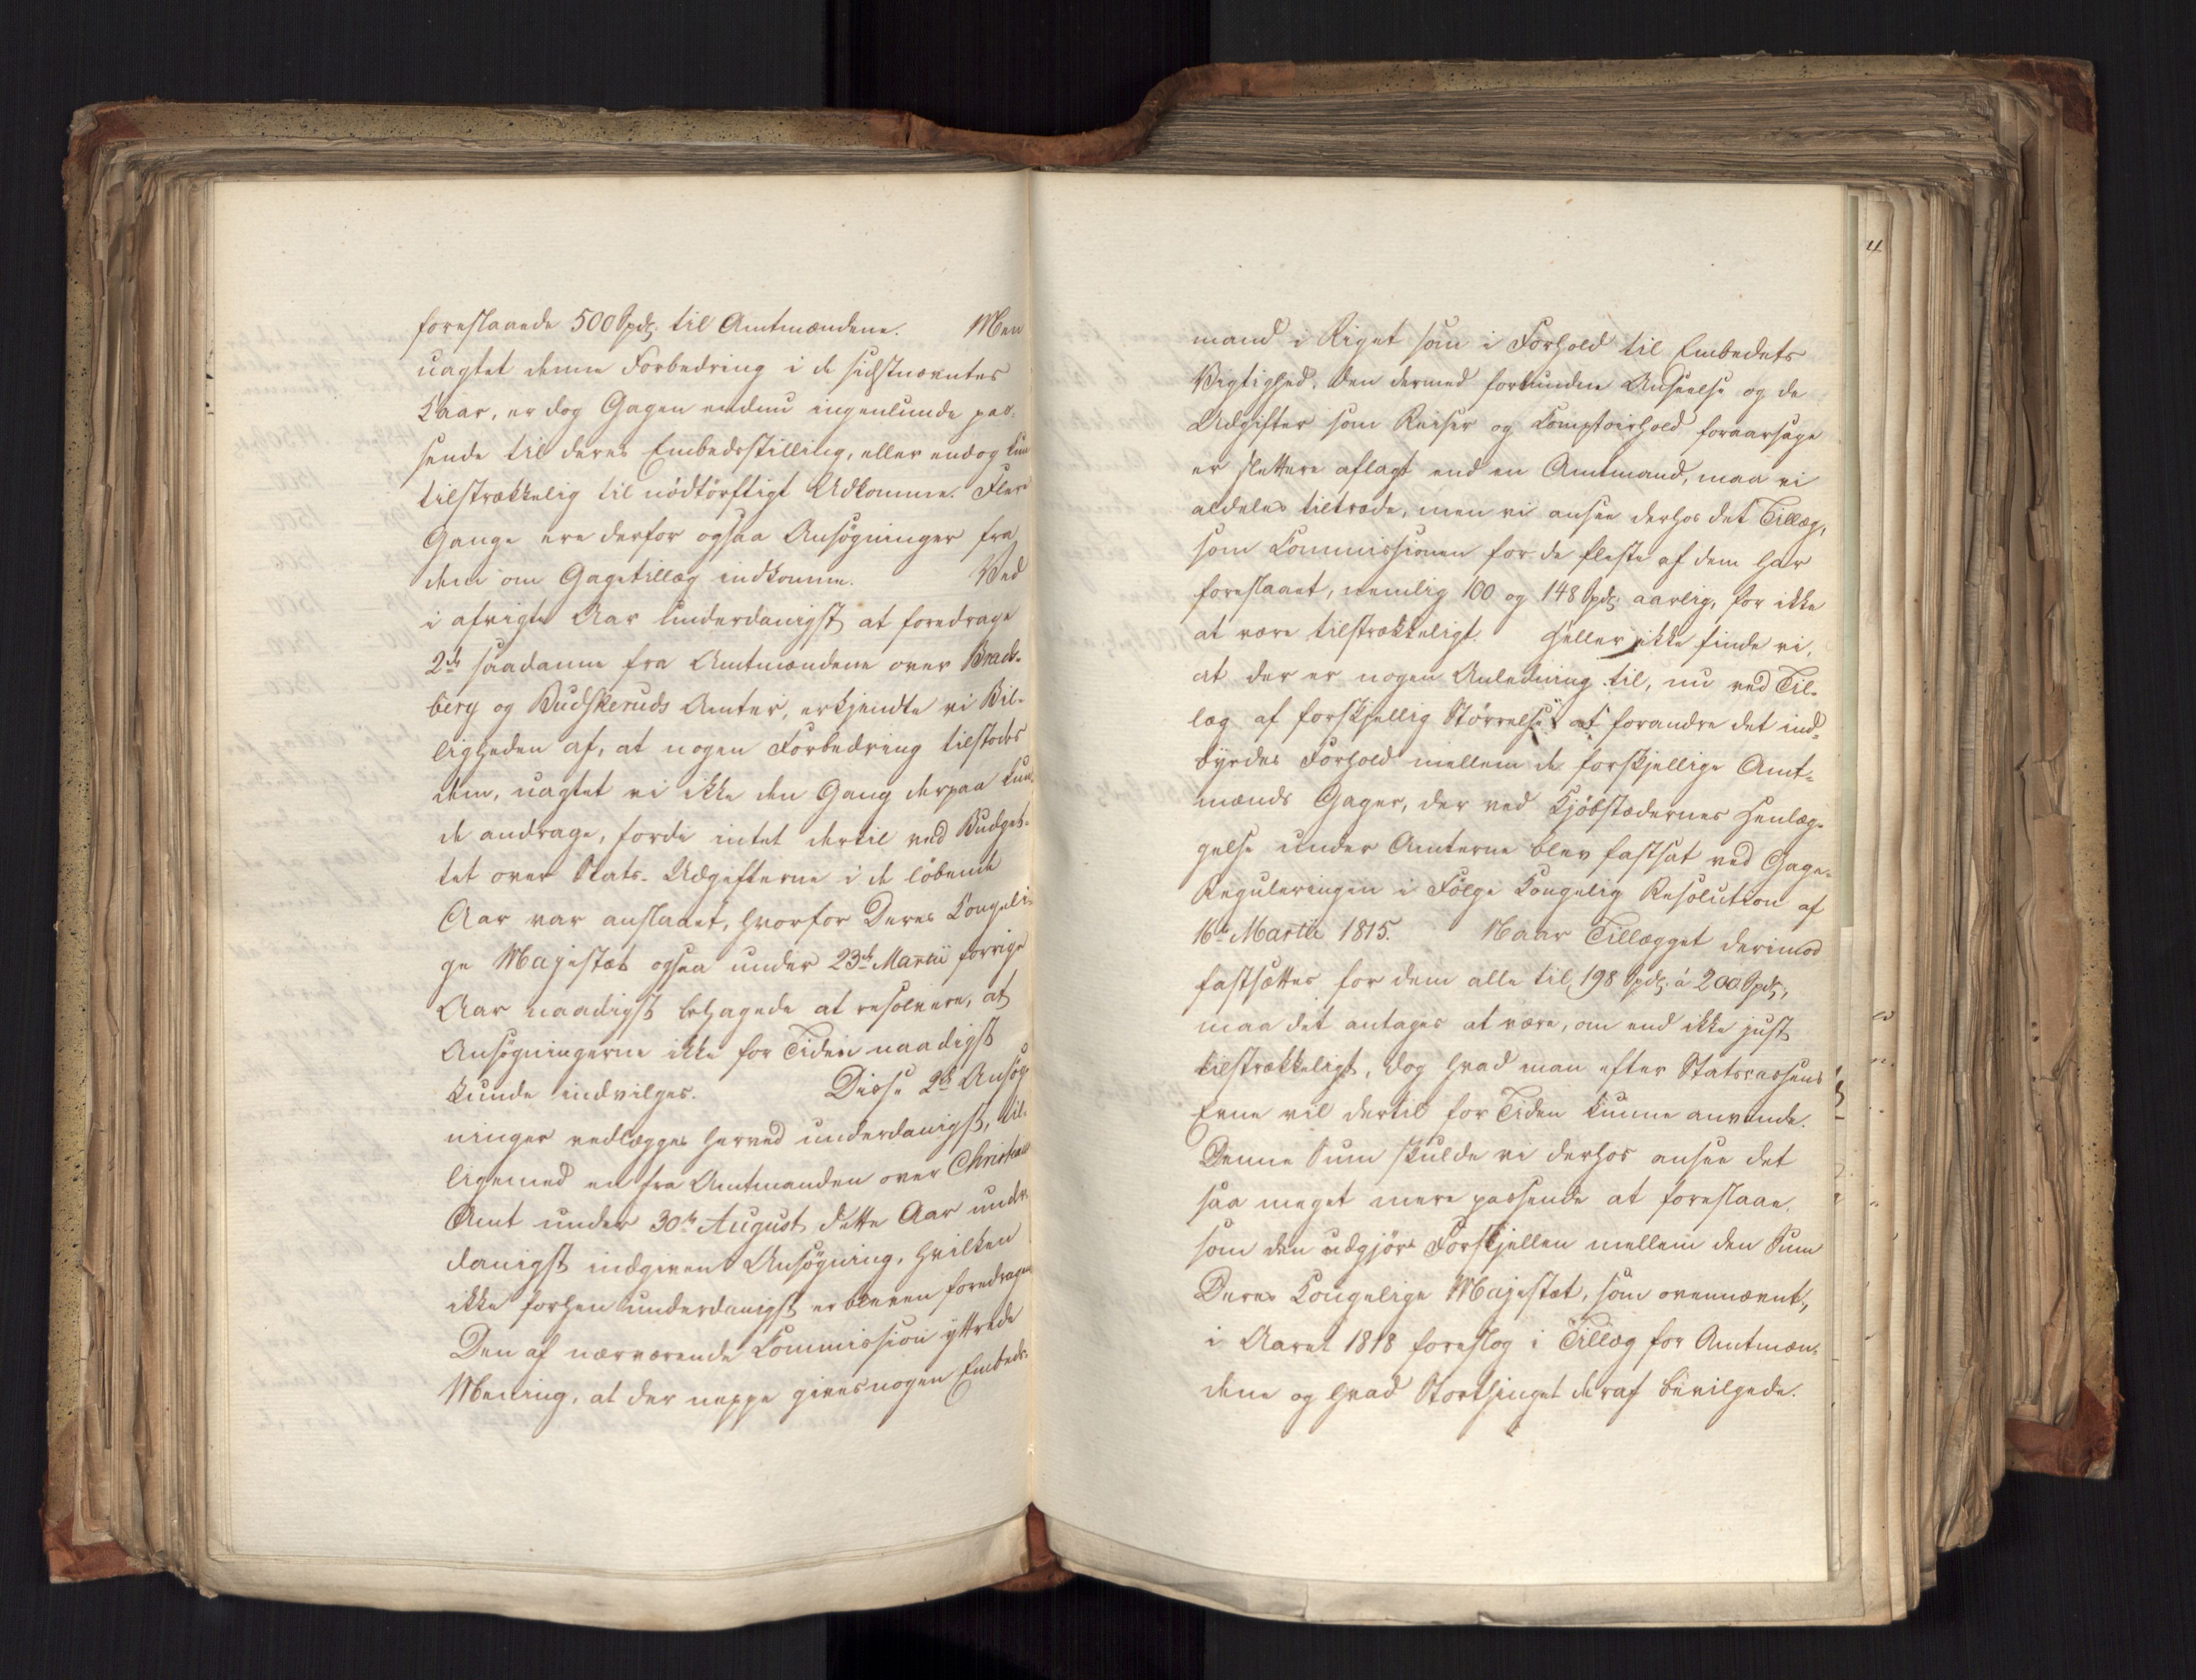 foreslaaede 500 Spd. til Amtmændene. Men
uagtet denne Forbedring i de sidstnævntes
Kaar, er dog Gagen endnu ingenlunde pas-
sende til deres Embedsstilling, eller endog kun
tilstrækkelig til nödtörftigt Udkomme. Flere
Gange ere derfor ogsaa Ansögninger fra
dem om Gagetillæg indkomne. Ved
i afvigte Aar underdanigst at foredrage
2de saadanne fra Amtmændene over Brads-
berg og Budskeruds Amter, erkjendte vi Bil-
ligheden af, at nogen Forbedring tilstodes
dem, uagtet vi ikke den Gang derpaa kun-
de andrage, fordi intet dertil ved Budget-
tet over Stats-Udgifterne i de löbende
Aar var anslaaet, hvorfor Deres Kongeli-
ge Majestæt ogsaa under 23de Martii forrige
Aar naadigst behagede at resolvere, at
Ansögningerne ikke for Tiden naadigst
kunde indvilges. Disse 2de Ansög-
ninger vedlægges herved underdanigst, til-
ligemed en fra Amtmanden over Christians
Amt under 30te August dette Aar under-
danigst indgiven Ansögning, hvilken
ikke forhen underdanigst er bleven foredragen
Den af nærværende Commission yttrede
Mening, at der neppe gives nogen Embeds-
4
mand i Riget som i Forhold til Embedets
Vigtighed, den dermed forbundne Anseelse og de
Udgifter som Reiser og Comptoirhold foraarsage
er slettere aflagt end en Amtmand, maa vi
aldeles tiltræde, men vi ansee derhos det Tillæg,
som Kommissionen for de fleste af dem har
foreslaaet, nemlig 100 og 148 Spd. aarlig, for ikke
at være tilstrækkeligt. Heller ikke finde vi,
at der er nogen Anledning til, nu ved Til-
læg af forskjellig Störrelse at forandre det ind-
byrdes Forhold mellem de forskjellige Amt-
mænds Gager, der ved Kjöbstædernes Henlæg-
gelse under Amterne blev fastsat ved Gage-
Reguleringen i Fölge Kongelig Resolution af
16de Martii 1815. Naar Tillægget derimod
fastsættes for dem alle til 198 Spd. á 200 Spd.,
maa det antages at være, om end ikke just
tilstrækkeligt, dog hvad man efter Statscassens
Evne vil dertil for Tiden kunne anvende.
Denne Sum skulde vi derhos ansee det
saa meget mere passende at foreslaae,
som den udgjör Forskjellen mellem den Sum
Deres Kongelige Majestæt, som ovennævnt,
i Aaret 1818 foreslog i Tillæg for Amtmæn-
dene og hvad Storthinget deraf bevilgede.